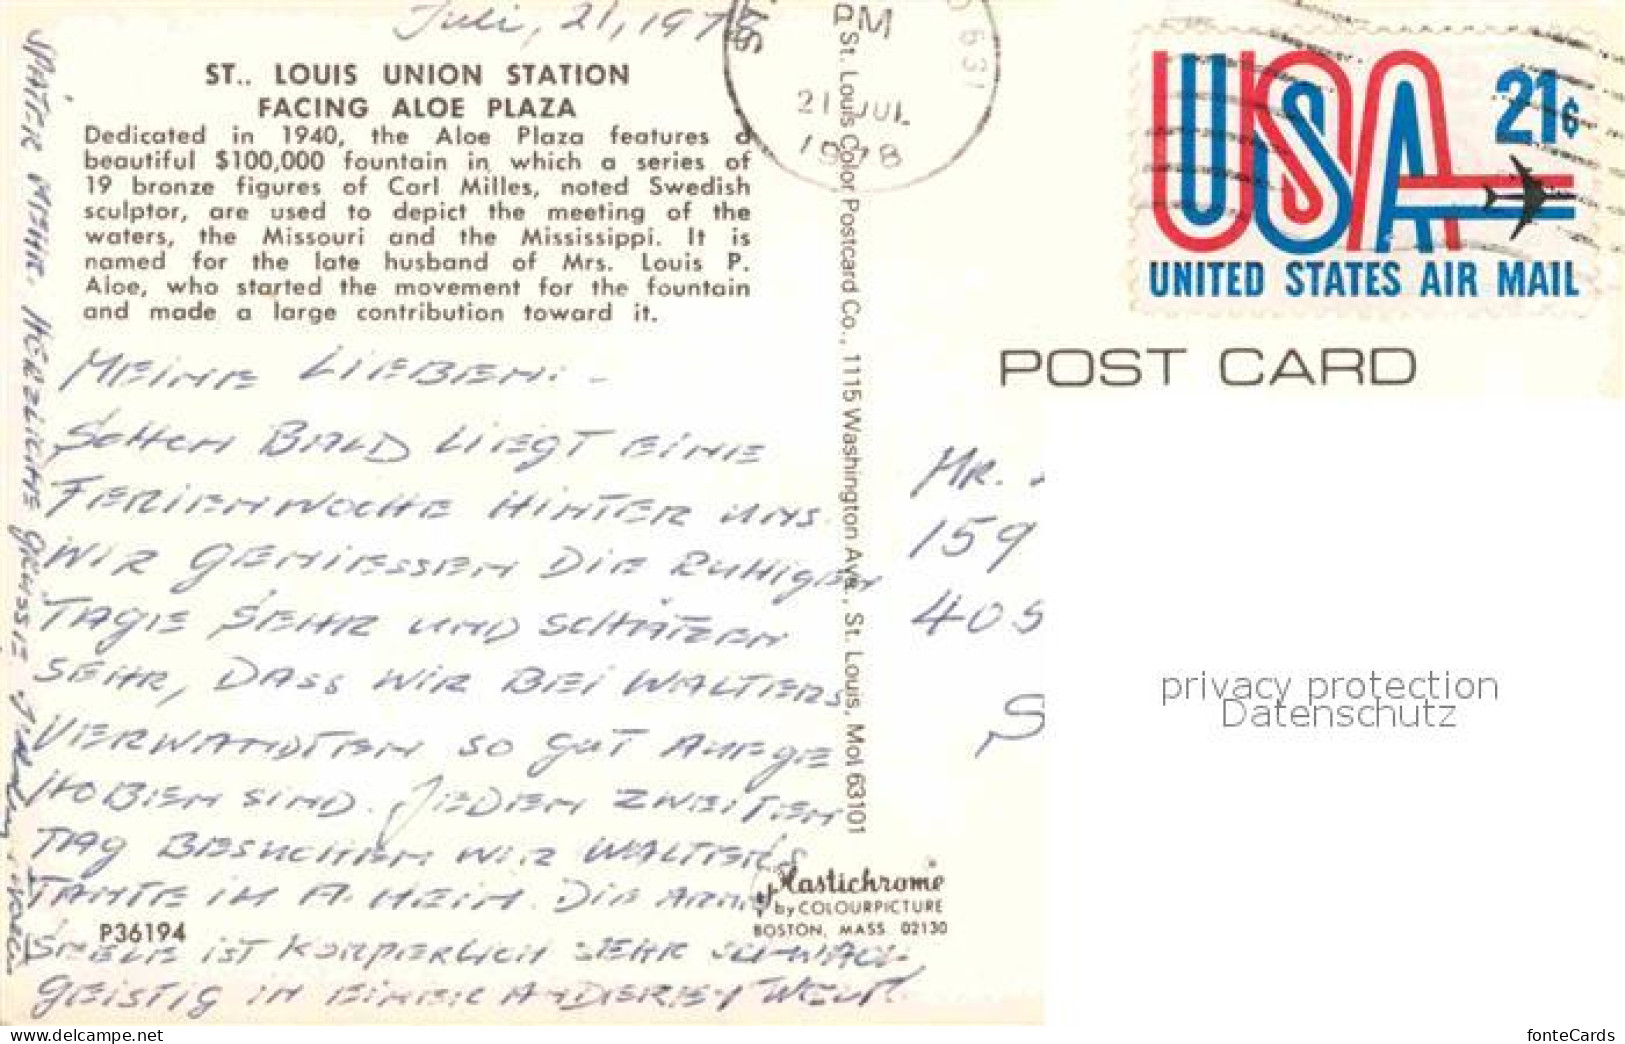 Juli, 21, 197
ST.. LOUIS UNION STATION
FACING ALOE PLAZA
Dedicated in 1940, the Aloe Plaza features a
beautiful $100,000 fountain in which a series of
19 bronze figures of Carl Milles, noted Swedish
sculptor, are used to depict the meeting of the
waters, the Missouri and the Mississippi. It is
named for the late husband of Mrs. Louis P.
Aloe, who started the movement for the fountain
and made a large contribution toward it.
MEINE LIEBEN: -
SCHON BALD LIEGT EINE
FERIENWOCHE HINTER UNS.
WIR GENIESSEN DIE RUHIGEN
TAGE SEHR UND SCHÄTZEN
SEHR, DASS WIR BEI WALTERS
VERWANDTEN SO GUT AUFGE
HOBEN SIND. JEDEN ZWEITEN
TAG BESUCHEN WIR WALTER'S
TANTE IM A. HEIM. DIE ARME
SEELE IST KÖRPERLICH SEHR SCHWACH
GEISTIG IN EINER ANDEREN WELT.
SPÄTER MEHR. HERZLICHE GRÜSSE
P36194
St. Louis Color Postcard Co., 1115 Washington Ave., St. Louis, Mo. 63101
Plastichrome
by COLOURPICTURE
BOSTON, MASS. 02130
PM
21 JUL
1978
631
USA
21¢
UNITED STATES AIR MAIL
POST CARD
MR.
159
405
S
privacy protection
Datenschutz
www.delcampe.net
fonteCards